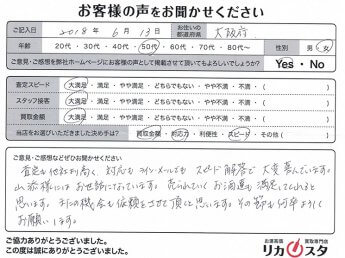 お客様の声をお聞かせください
ご記入日 2018年 6月 13日 お住いの都道府県 大阪府
年齢 20代・30代・40代・50代・60代・70代・80代〜 性別 男・女
ご意見・ご感想を弊社ホームページにお客様の声として掲載させて頂いてもよろしいでしょうか? Yes・No
査定スピード 大満足・満足・やや満足・どちらでもない・やや不満・不満・( )
スタッフ接客 大満足・満足・やや満足・どちらでもない・やや不満・不満・( )
買取金額 大満足・満足・やや満足・どちらでもない・やや不満・不満・( )
当店をお選びいただきました決め手は? 買取金額・対応力・利便性・スピード・その他( )
ご意見・ご感想などぜひお聞かせください
査定も他社より高く、対応もラインメールでもスピード解答で大変喜んでいます。
様にはお世話になっています。売られていくお酒達も満足してくれると
思います。またの機会も依頼をさせて頂くと思います。その節も何卒よろしく
お願いします。
ご協力ありがとうございました。
この度は誠にありがとうございました。
お酒高価 買取専門店
リカスタ